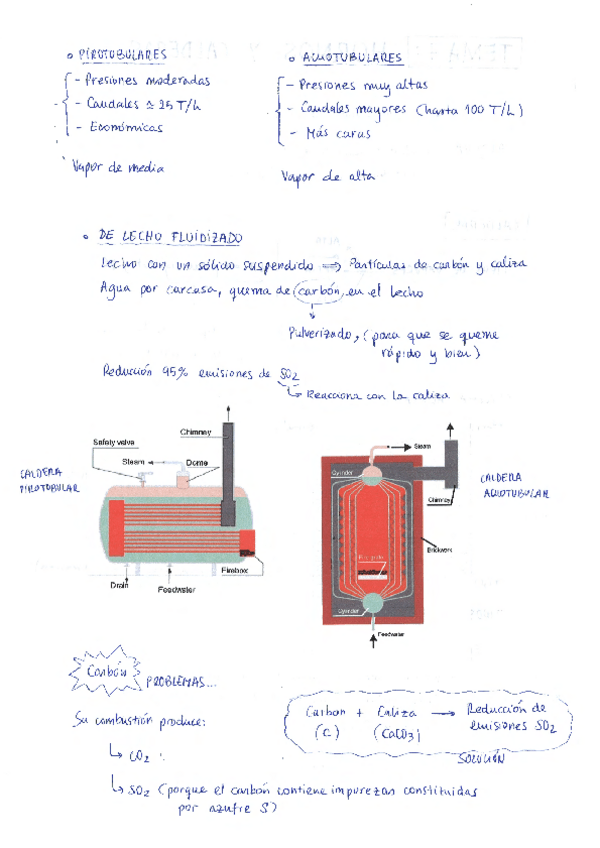 • PIROTUBULARES
- Presiones moderadas
- Caudales ≃ 25 T/h
- Económicas
Vapor de media
• ACUOTUBULARES
- Presiones muy altas
- Caudales mayores (hasta 100 T/h)
- Más caras
Vapor de alta
• DE LECHO FLUIDIZADO
Lecho con un sólido suspendido ⇒ Partículas de carbón y caliza
Agua por carcasa, quema de carbón en el lecho
↓
Pulverizado, (para que se queme
rápido y bien)
Reducción 95% emisiones de SO2
↳ Reacciona con la caliza
CALDERA
PIROTUBULAR
Chimney
Safety valve
Steam
Dome
Firebox
Drain
Feedwater
Steam
Cylinder
Chimney
Brickwork
Cylinder
Feedwater
CALDERA
ACUOTUBULAR
Carbón PROBLEMAS...
Su combustión produce:
↳ CO2
↳ SO2 (porque el carbón contiene impurezas constituidas
por azufre S)
Carbon + Caliza → Reducción de
(C) (CaCO3) emisiones SO2
SOLUCIÓN